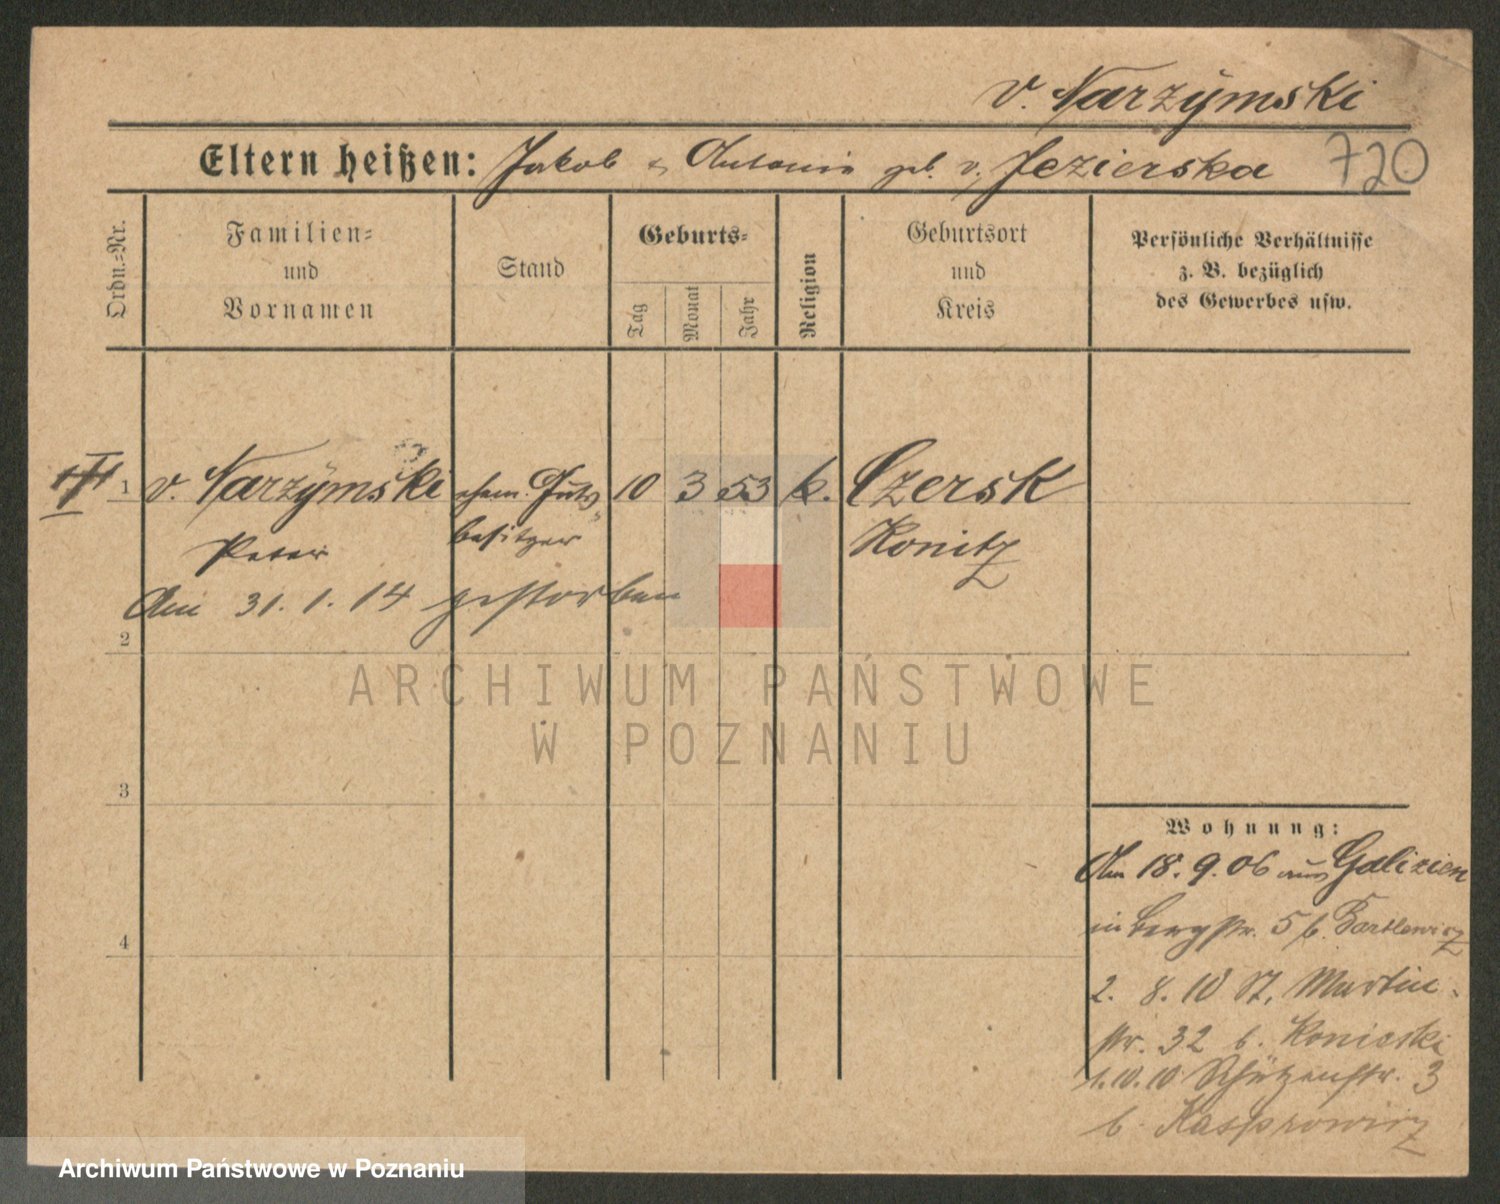 v. Narzymski
Eltern heißen: Jakob u Antonie geb. v. Jezierska
720
Ordn.=Nr.
Familien=
und
Vornamen
Stand
Geburts=
Tag
Monat
Jahr
Religion
Geburtsort
und
Kreis
Persönliche Verhältnisse
z. B. bezüglich
des Gewerbes usw.
1 v. Narzymski ehem. Guts= 10 3 53 k. Czersk
Peter besitzer Konitz
Am 31. 1. 14 gestorben
2
3
4
Wohnung:
Am 18. 9. 06 aus Galizien
in Bergstr. 5 b. Bartlewicz
2. 8. 10 St. Martin-
str. 32 b. Konieski
1.10.10 Schützenstr. 3
b. Kasprowicz
ARCHIWUM PAŃSTWOWE
W POZNANIU
Archiwum Państwowe w Poznaniu